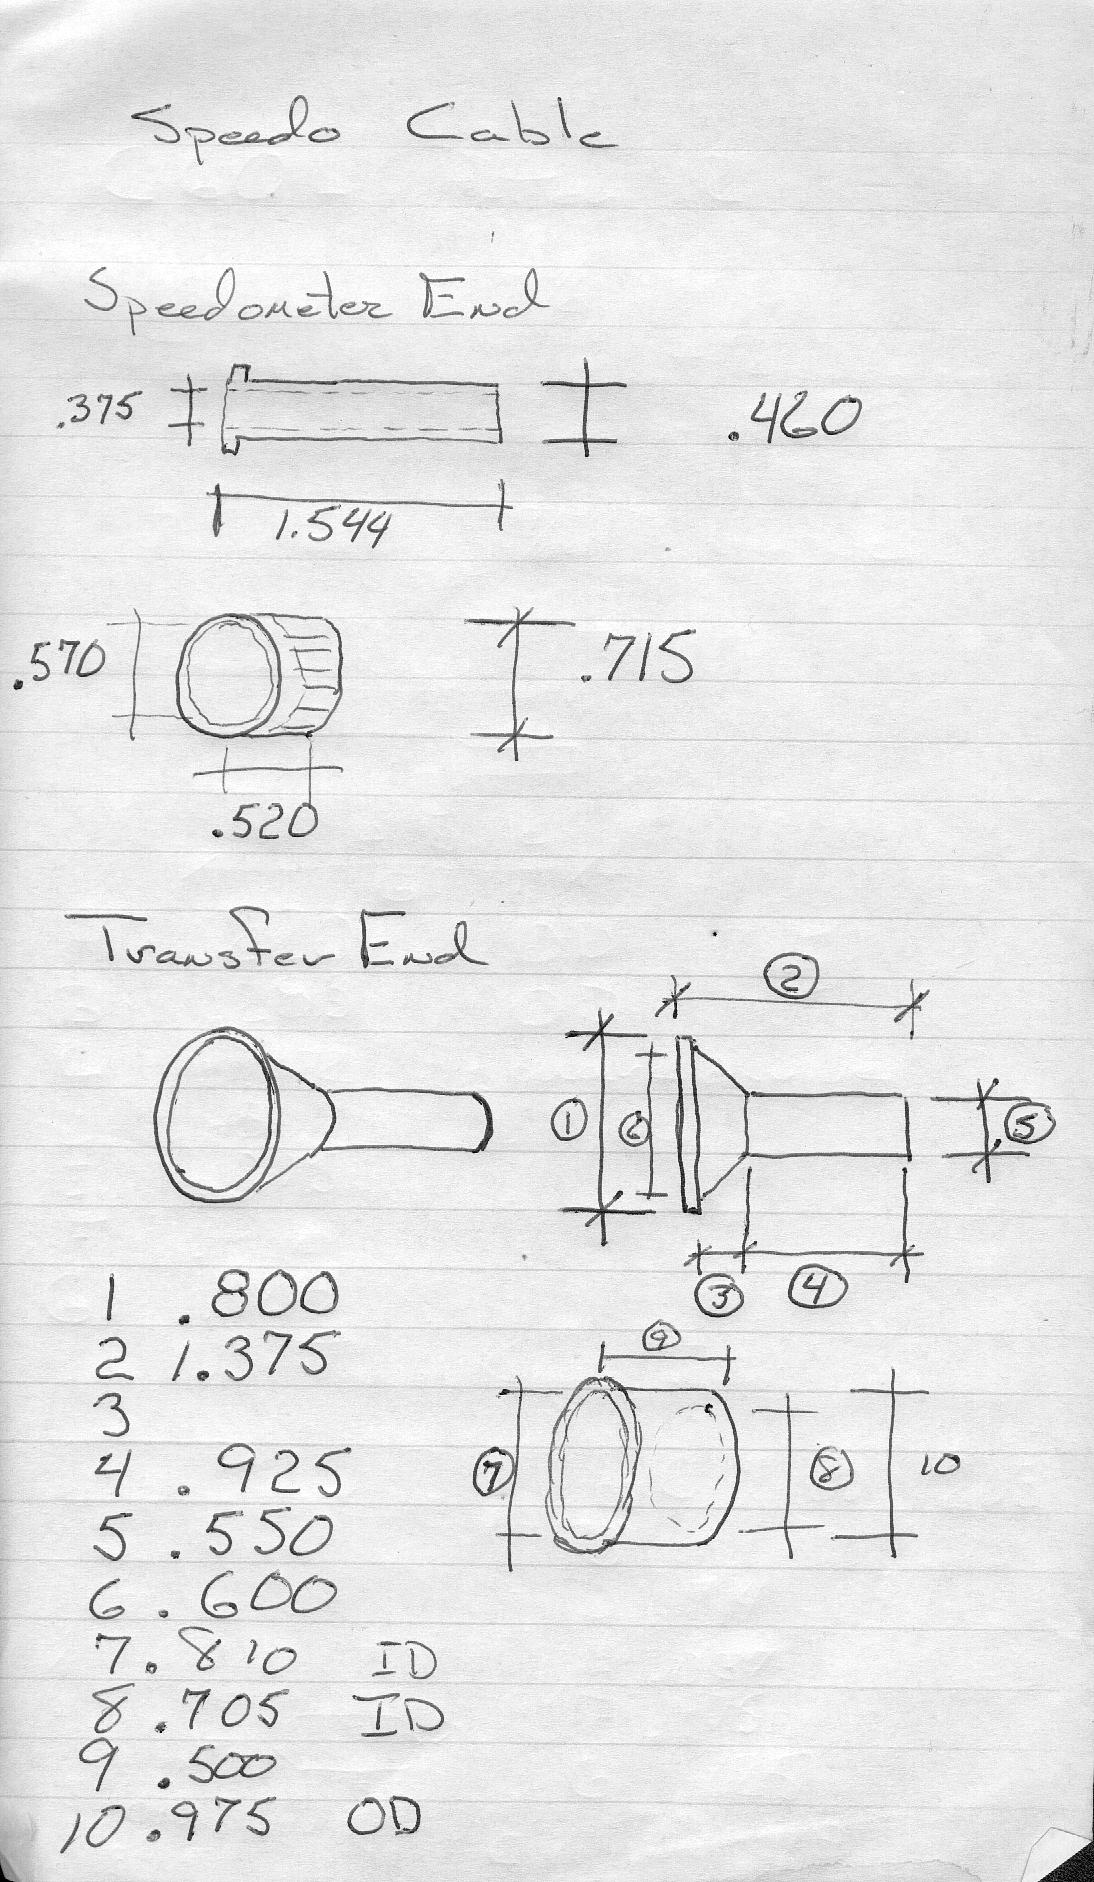 Speedo Cable
Speedometer End
.375
.460
1.544
.570
.715
.520
Transfer End
2
1
6
5
3
4
1 .800
2 1.375
3
4 .925
5 .550
6 .600
7 .810 ID
8 .705 ID
9 .500
10 .975 OD
9
7
8
10